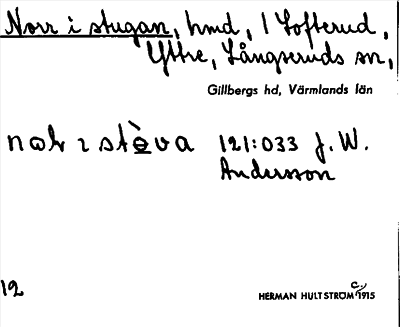 Norr i stugan, hmd, 1 Lofterud,
Yttre, Långseruds sn,
Gillbergs hd, Värmlands län
121:033 J. W.
Andersson
12
HERMAN HULTSTRÖM C. 1915